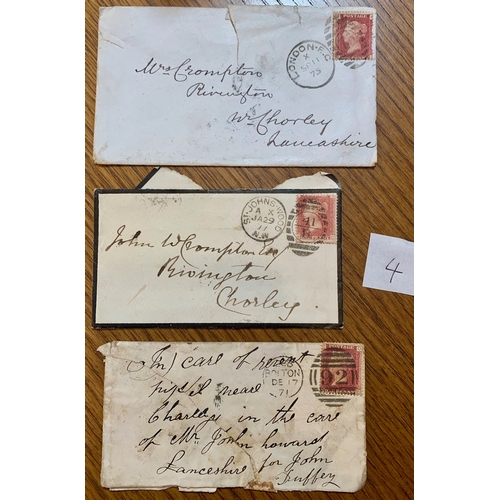 POSTAGE
LONDON·E.C
X
75
Mrs Crompton
Rivington
Nr Chorley
Lancashire
ST·JOHNS·WOOD
A X
JA 29
77
N.W
John W Crompton Esq
Rivington
Chorley
4
BOLTON
DE 17
71
92
(In) care of
near
Charley in the care
of Mr John howard
Lanceshire for John
Duffey